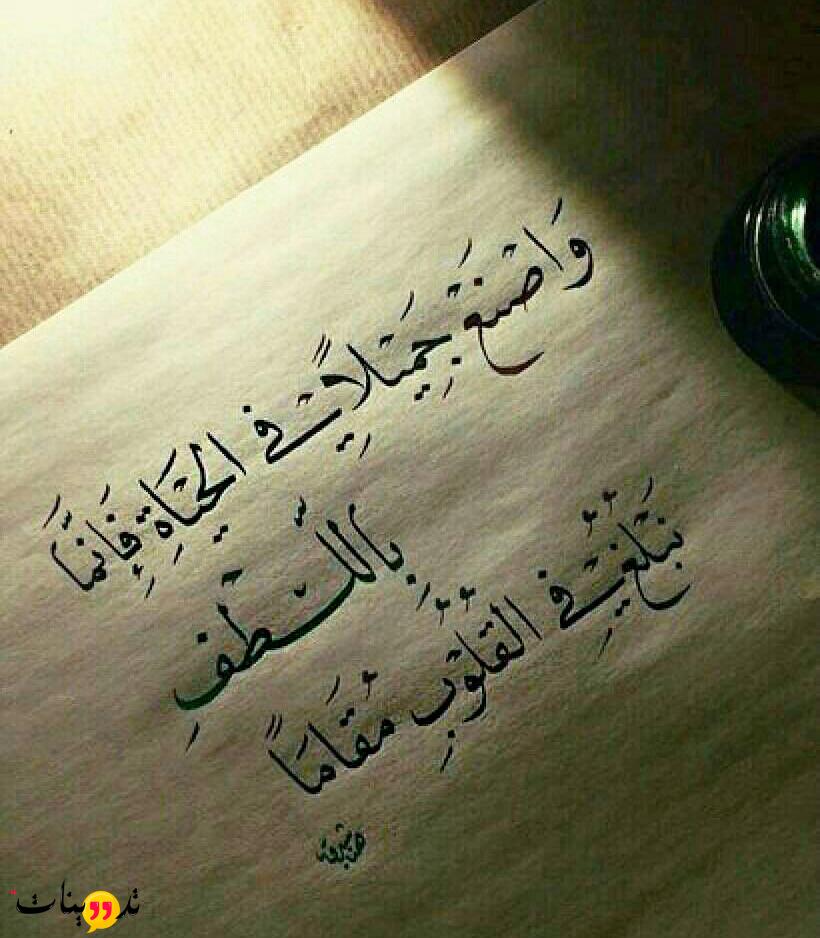 وَاصْنَعْ جَمِيْلاً فِي الْحَيَاةِ فَإِنَّمَا
بِاللُّطْفِ
نَبْلُغُ فِي الْقُلُوْبِ مُقَامَاً
تدوينات